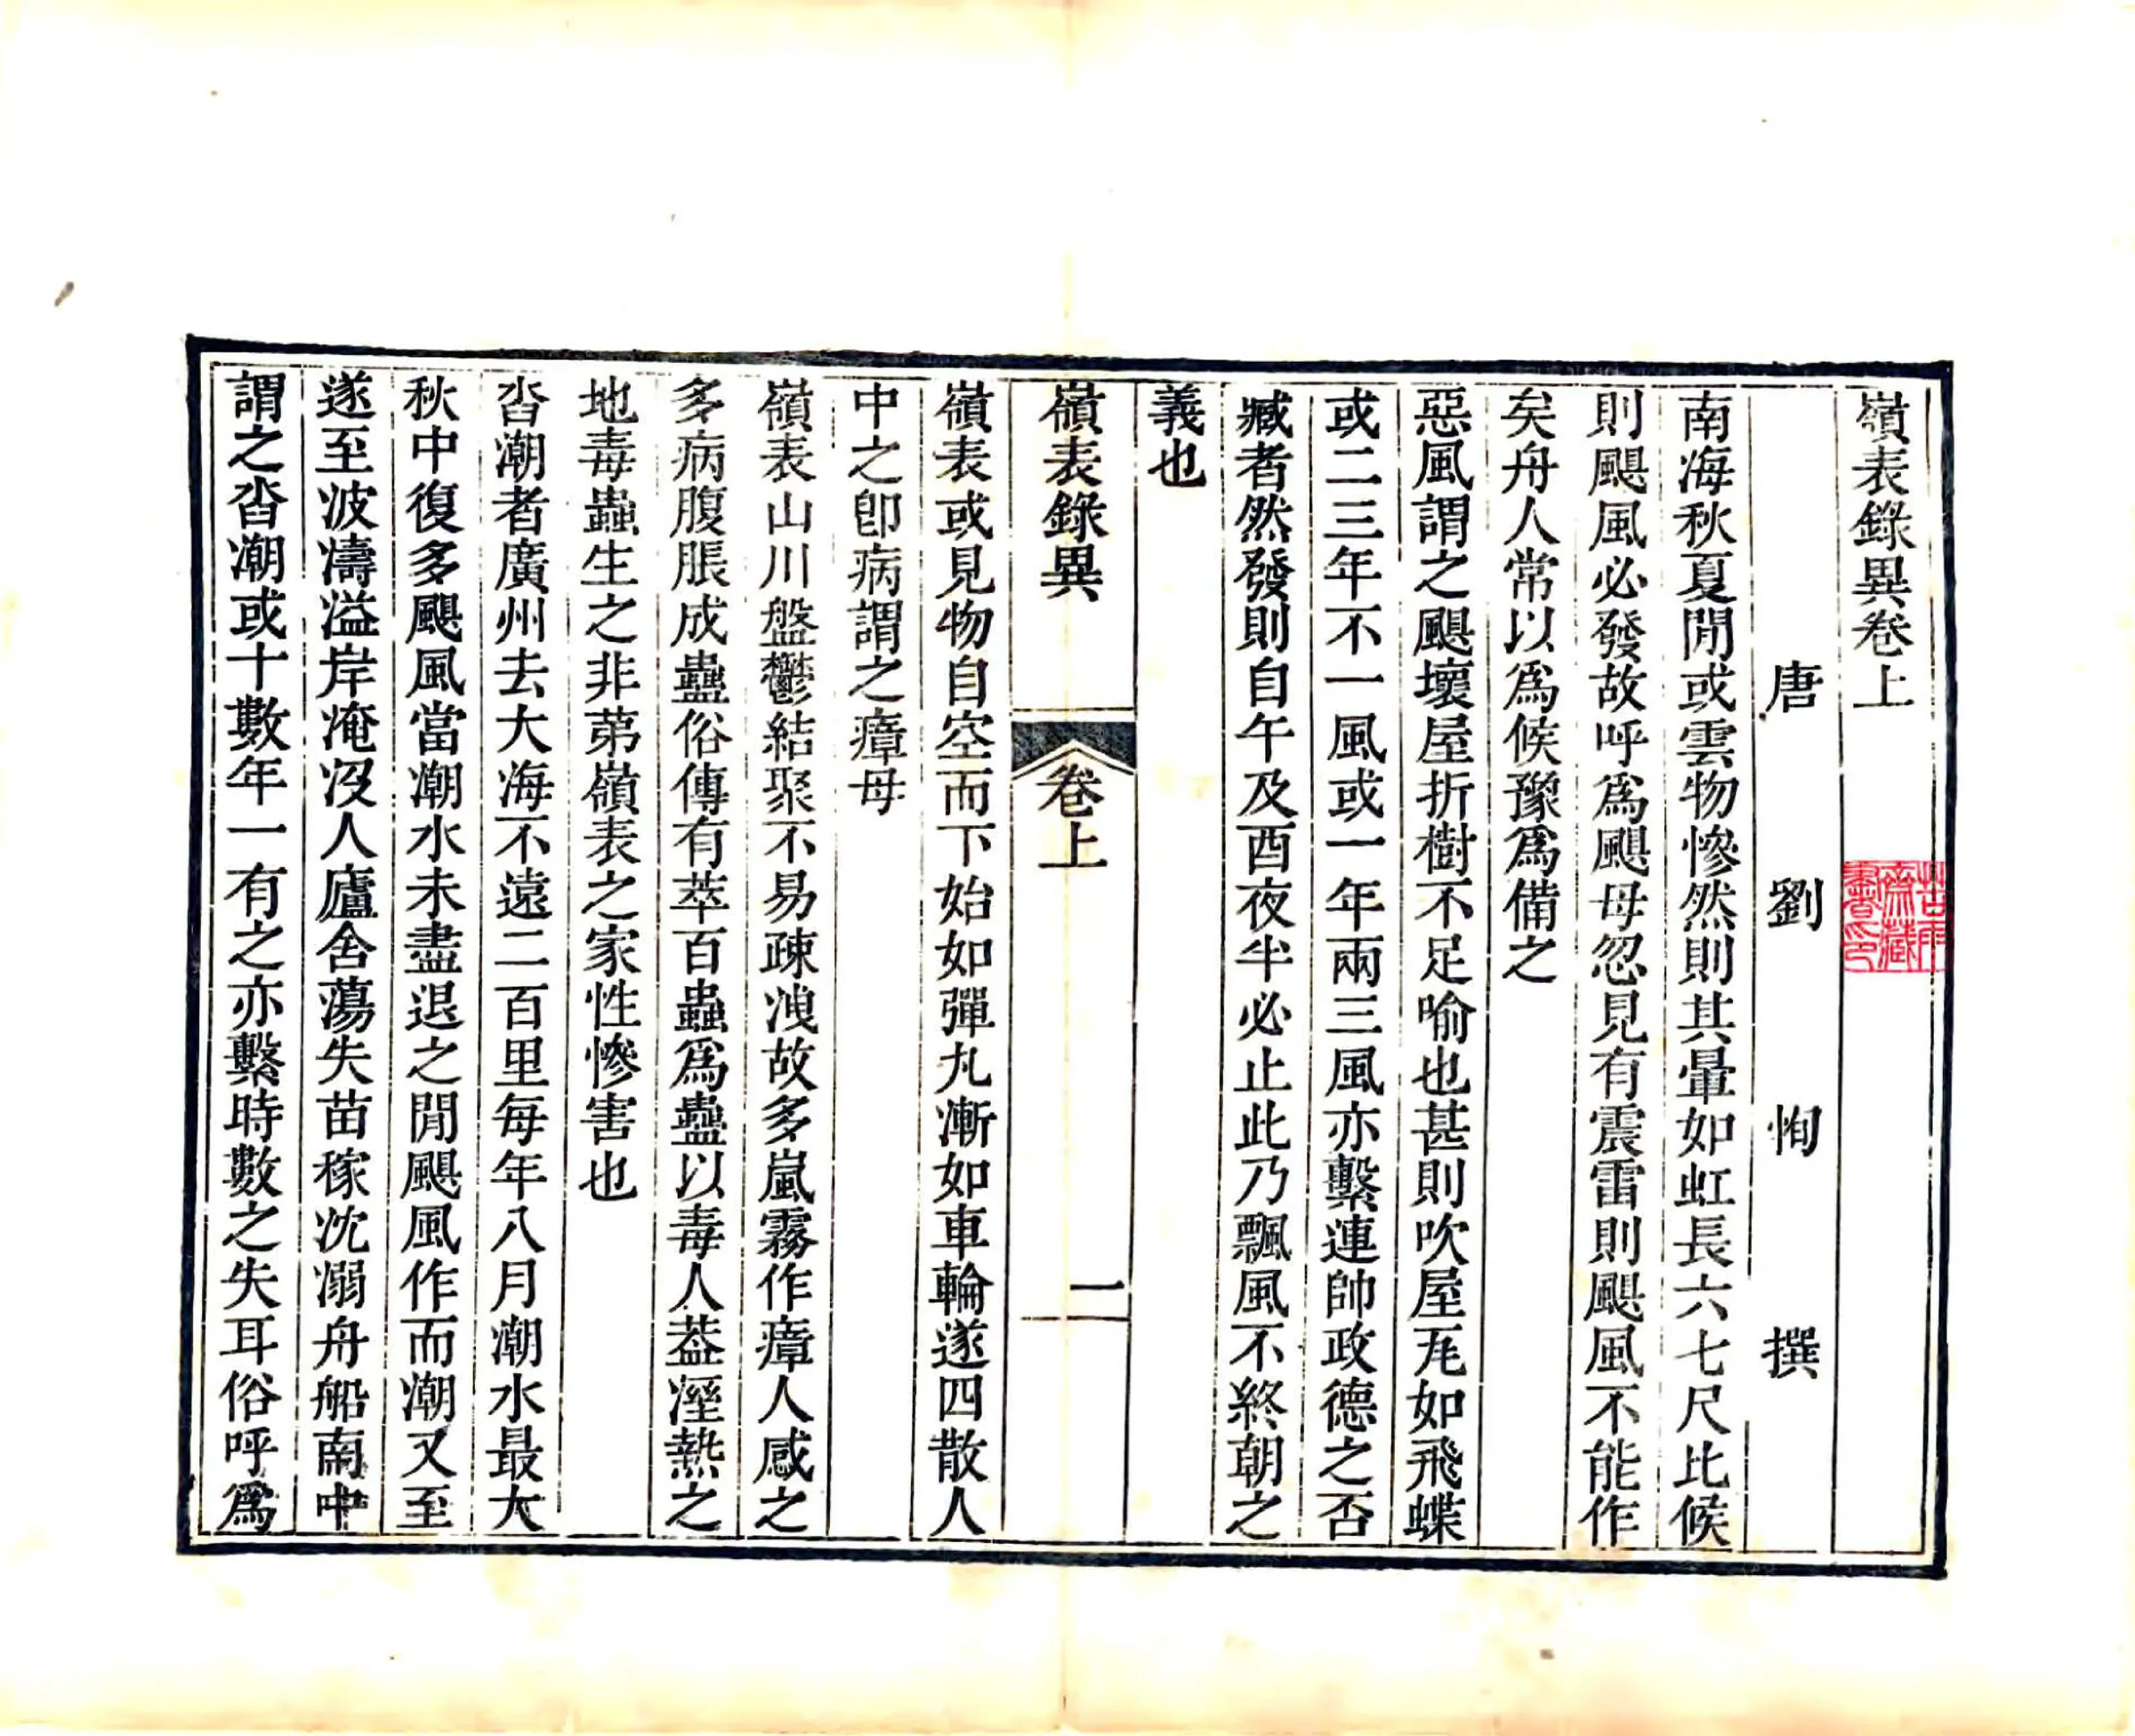 嶺表錄異卷上
唐 劉 恂 撰
南海秋夏閒或雲物慘然則其暈如虹長六七尺比候
則颶風必發故呼爲颶母忽見有震雷則颶風不能作
矣舟人常以爲候豫爲備之
惡風謂之颶壞屋折樹不足喻也甚則吹屋瓦如飛蝶
或二三年不一風或一年兩三風亦繫連帥政德之否
臧者然發則自午及酉夜半必止此乃飄風不終朝之
義也
嶺表錄異 卷上 一
嶺表或見物自空而下始如彈丸漸如車輪遂四散人
中之卽病謂之瘴母
嶺表山川盤鬱結聚不易疎洩故多嵐霧作瘴人感之
多病腹脹成蠱俗傳有萃百蟲爲蠱以毒人葢溼熱之
地毒蟲生之非第嶺表之家性慘害也
沓潮者廣州去大海不遠二百里每年八月潮水最大
秋中復多颶風當潮水未盡退之閒颶風作而潮又至
遂至波濤溢岸淹沒人廬舍蕩失苗稼沈溺舟船南中
謂之沓潮或十數年一有之亦繫時數之失耳俗呼爲